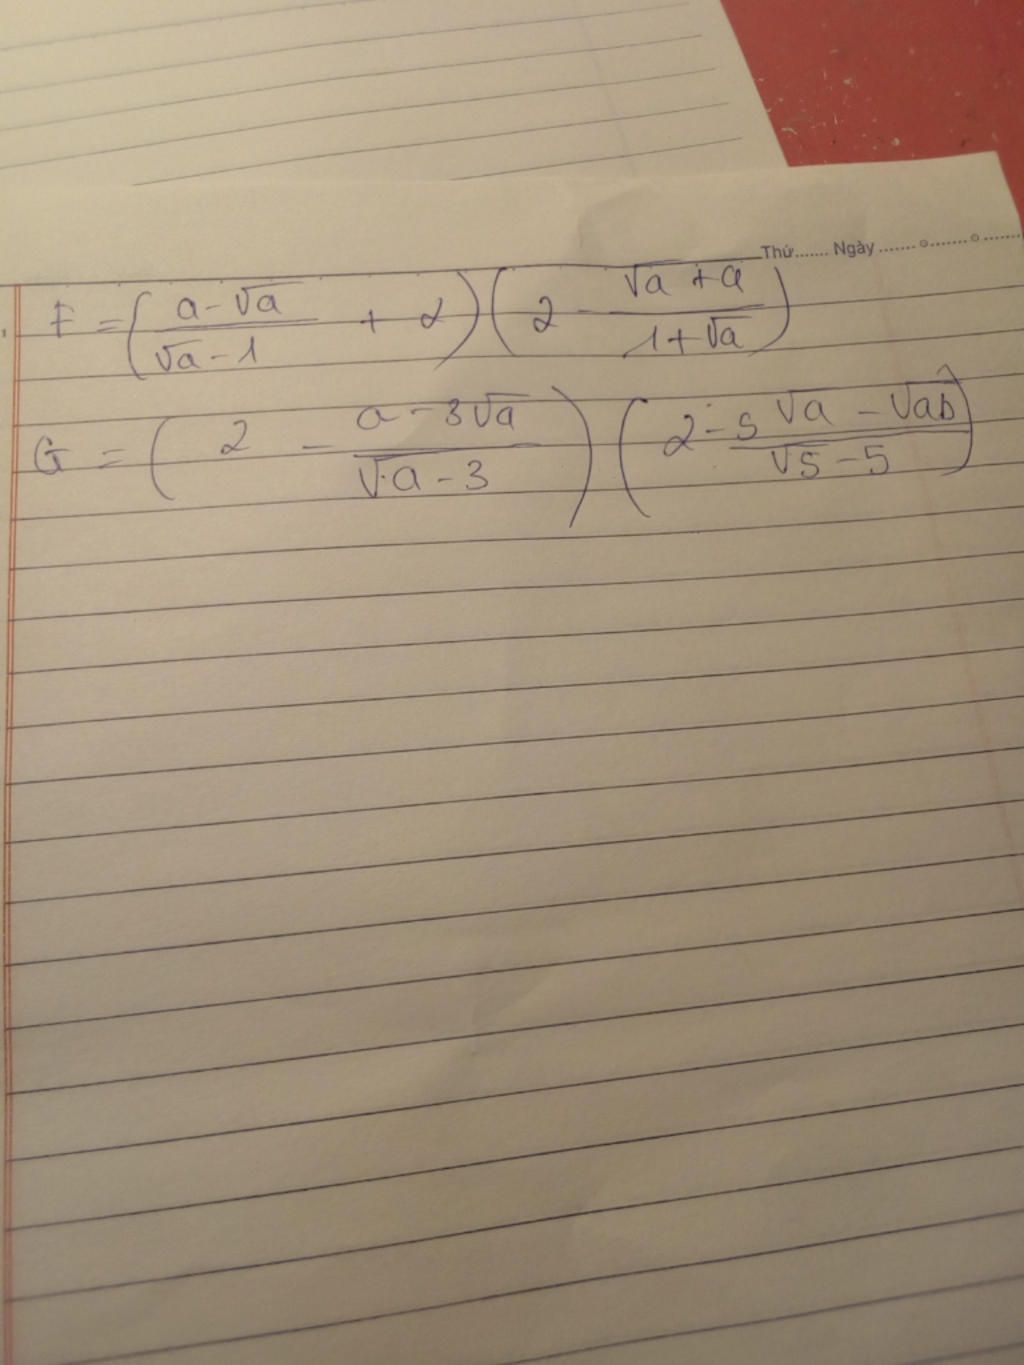 Thứ....... Ngày ....... o ....... o .......
F = ( (a - √a)/(√a - 1) + 2 ) ( 2 - (√a + a)/(1 + √a) )
G = ( 2 - (a - 3√a)/(√a - 3) ) ( 2 - (5√a - √ab)/(√5 - 5) )